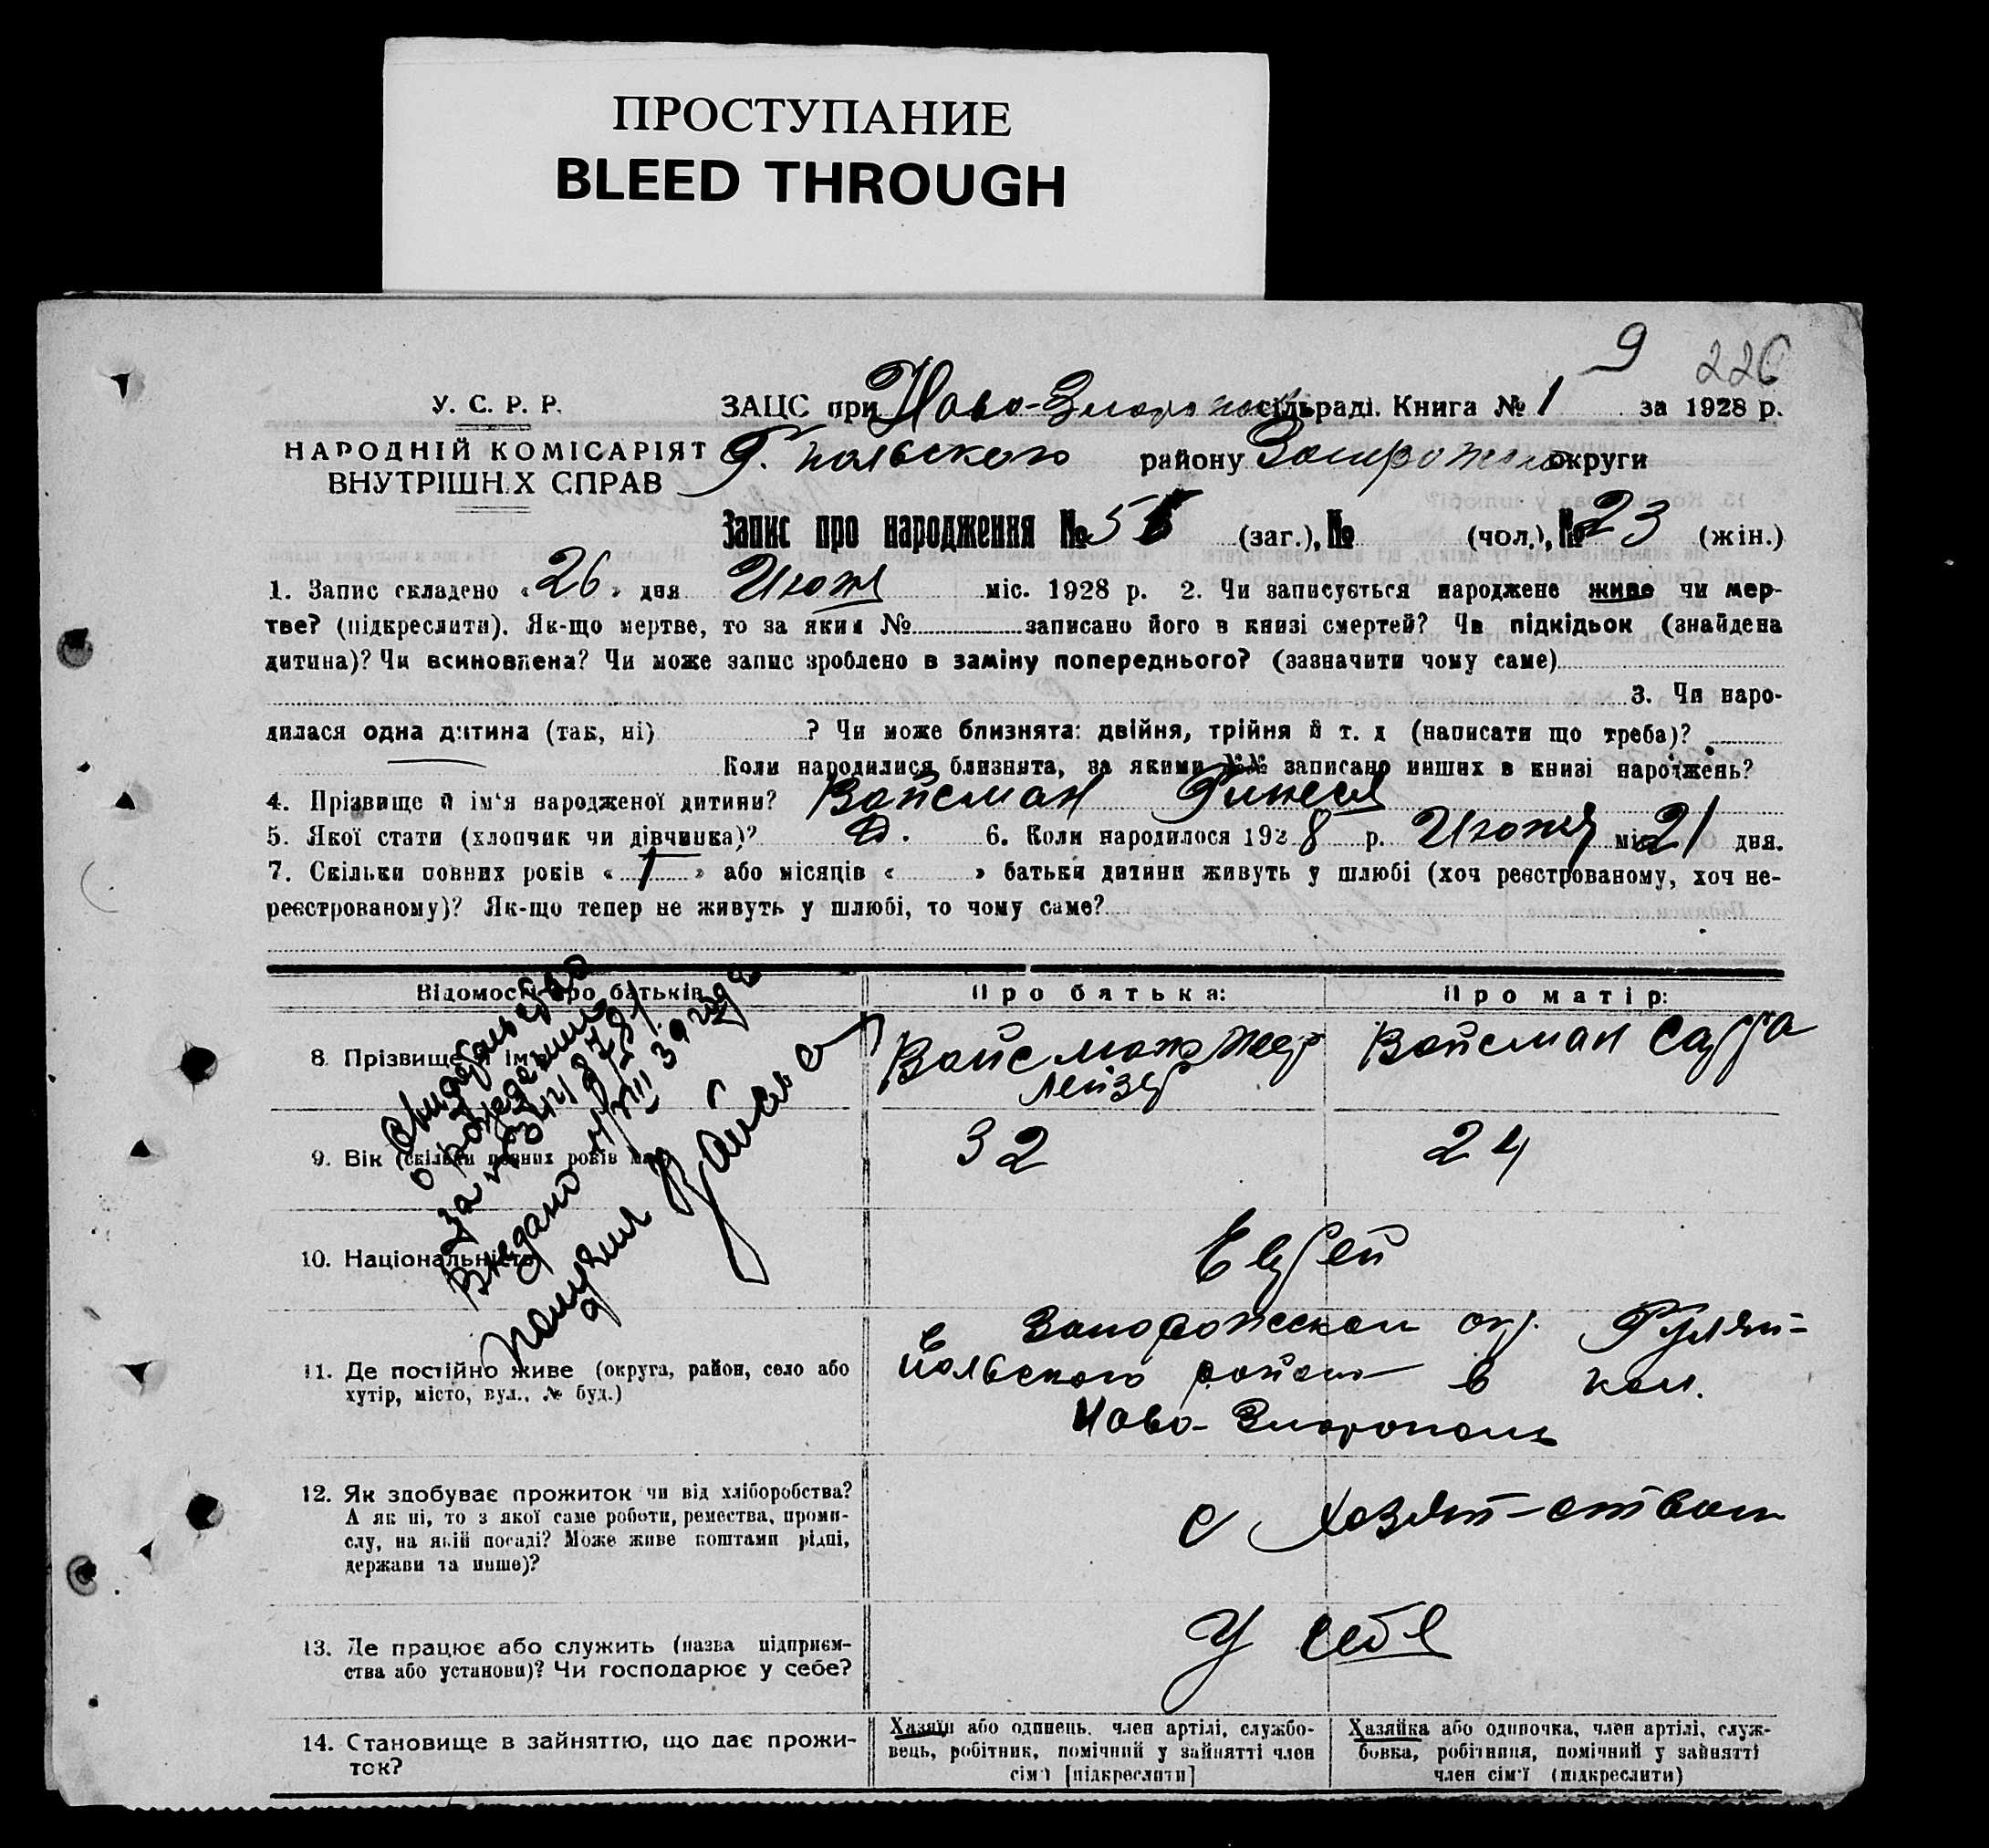 ПРОСТУПАНИЕ
BLEED THROUGH
9 226
У. С. Р. Р.
НАРОДНІЙ КОМІСАРІЯТ
ВНУТРІШНІХ СПРАВ
ЗАЦС при Ново-Златополь сільраді. Книга № 1 за 1928 р.
Г. Польского району Запорожской округи
Запис про народження № 5 (заг.), № (чол.), № 23 (жін.)
1. Запис складено «26» дня Июня міс. 1928 р. 2. Чи записується народжене живе чи мер-
тве? (підкреслити). Як-що мертве, то за яким № записано його в книзі смертей? Чи підкідьок (знайдена
дитина)? Чи всиновлена? Чи може запис зроблено в заміну попереднього? (зазначити чому саме)
3. Чи наро-
дилася одна дитина (так, ні) ? Чи може близнята: двійня, трійня й т. д (написати що треба)?
Коли народилися близнята, за якими №№ записано инших в книзі народжень?
4. Прізвище й ім'я народженої дитини? Вайсман
5. Якої стати (хлопчик чи дівчинка)? Д. 6. Коли народилося 1928 р. Июня міс. 21 дня.
7. Скільки повних років « 1 » або місяців « » батьки дитини живуть у шлюбі (хоч реєстрованому, хоч не-
реєстрованому)? Як-що тепер не живуть у шлюбі, то чому саме?
Відомості про батьків Про батька: Про матір:
8. Прізвище й ім'я
Вайсман
Лейзер
Вайсман Сарра
9. Вік (скільки повних років має) 32 24
10. Національність Еврей
11. Де постійно живе (округа, район, село або
хутір, місто, вул., № буд.)
в Запорожской окр. Гуляй-
Польского район в кол.
Ново-Златополь
12. Як здобуває прожиток чи від хліборобства?
А як ні, то з якої саме роботи, ремества, проми-
слу, на якій посаді? Може живе коштами рідні,
держави та инше)?
с Хозяй-ством
13. Де працює або служить (назва підприєм-
ства або установи)? Чи господарює у себе?
У себя
14. Становище в зайняттю, що дає прожи-
ток?
Хазяїн або одинець, член артілі, службо-
вець, робітник, помічний у зайнятті член
сім'ї [підкреслити]
Хазяйка або одиночка, член артілі, служ-
бовка, робітниця, помічний у зайнятті
член сім'ї (підкреслити)
Свидетельство
о рождении
за №
Выдано
получил Вайсман